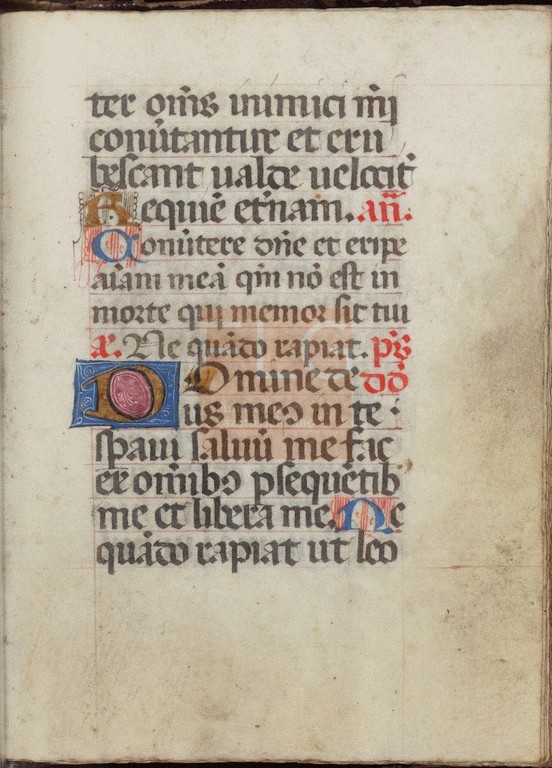 ter om̄s inimici m̄j
conũtantur et eru
bescant ualde uelocit᷑
Requiē et̄nam. an̄.
Conũtere dn̄e et eripe
aīam meā qm̄ nō est in
morte qui memor sit tui
a. Ne quādo rapiat. p̄s
Domine de dō
us meꝯ in te :
spaui saluū me fac
ex omībꝯ psequētib
me et libera me. Ne
quādo rapiat ut leo